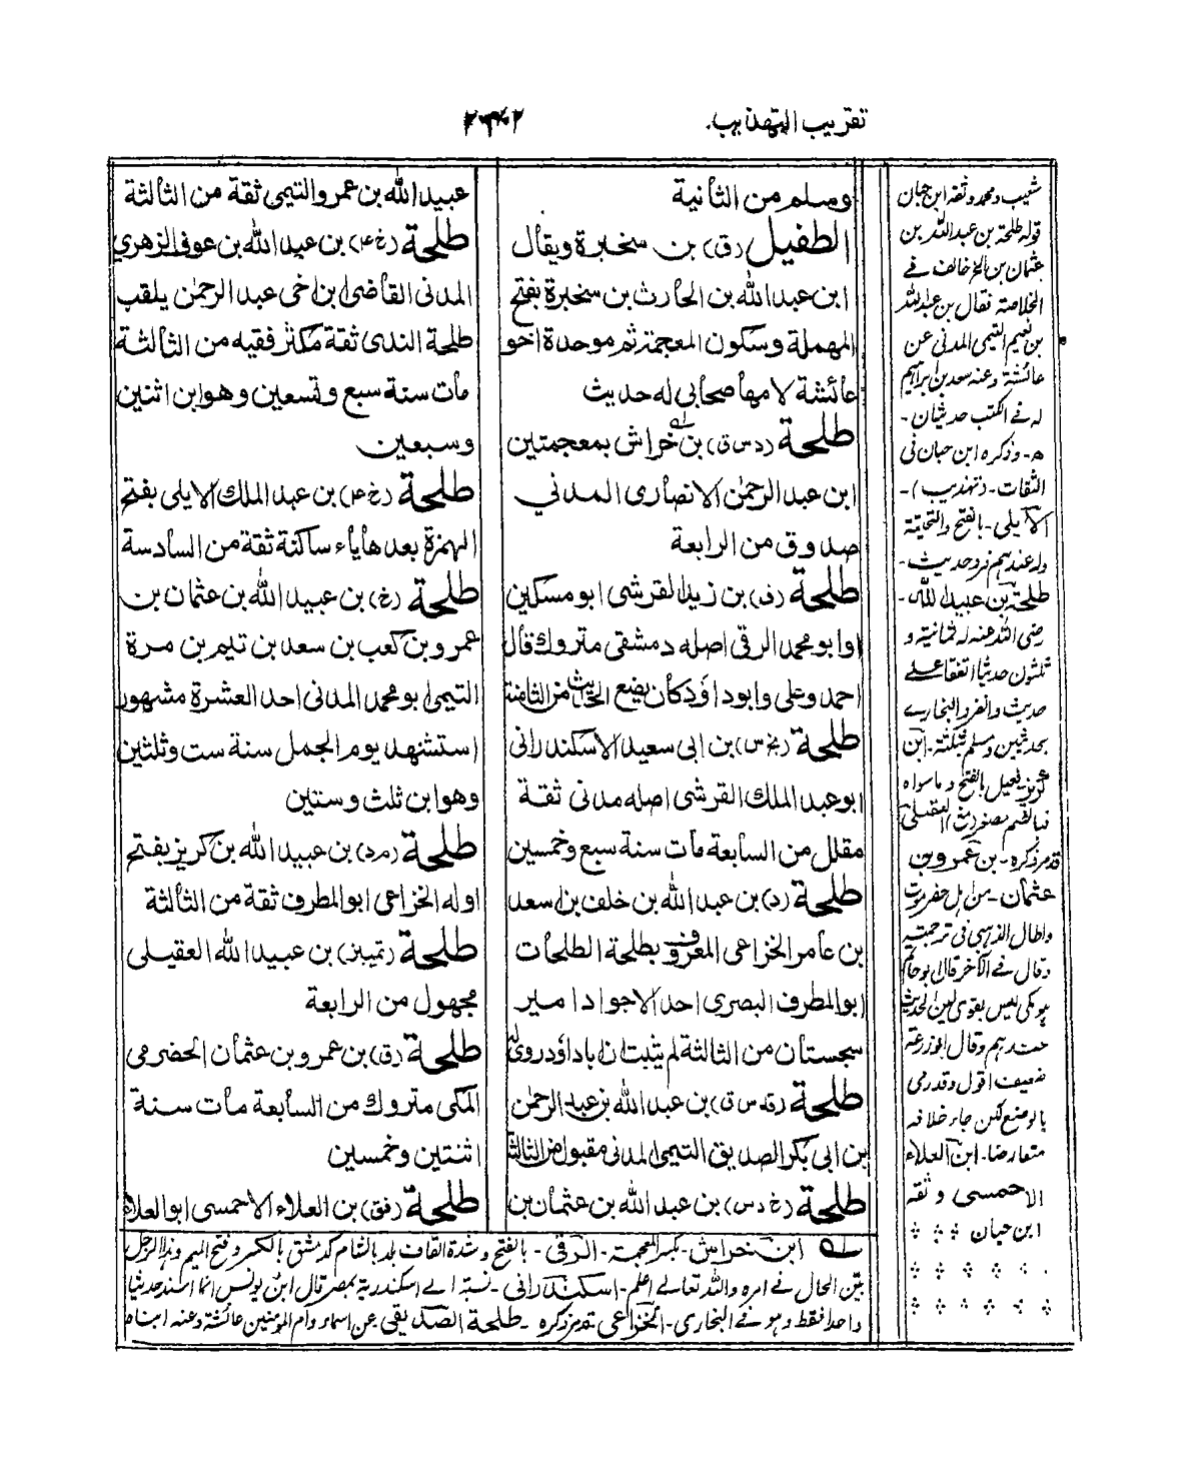 تقريب التهذيب.
وسلم من الثانية
الطفيل (ق) بن سخبرة ويقال
ابن عبد الله بن الحارث بن سخبرة بفتح
المهملة وسكون المعجمة ثم موحدة اخو
عائشة لامها صحابى له حديث
طلحة (دس ق) بن خراش بمعجمتين
ابن عبد الرحمٰن الانصارى المدني
صدوق من الرابعة
طلحة (ق) بن زيد القرشى ابو مسكين
او ابو محمد الرقى اصله دمشقى متروك قال
احمد وعلى وابو داؤد كان يضع الحديث من الثامنة
طلحة (خ س) بن ابى سعيد الاسكندرانى
ابو عبد الملك القرشى اصله مدنى ثقة
مقلل من السابعة مات سنة سبع وخمسين
طلحة (د) بن عبد الله بن خلف بن اسعد
بن عامر الخزاعى المعروف بطلحة الطلحات
ابو المطرف البصرى احد الاجواد امير
سجستان من الثالثة لم يثبت ان ابا داؤد روى له
طلحة (قد س ق) بن عبد الله بن عبد الرحمٰن
بن ابى بكر الصديق التيمى المدنى مقبول من الثالثة
طلحة (خ دس) بن عبد الله بن عثمان بن
عبيد الله بن عمرو التيمى ثقة من الثالثة
طلحة (خ ۴) بن عبد الله بن عوف الزهري
المدنى القاضى ابن اخى عبد الرحمٰن يلقب
طلحة الندى ثقة مكثر فقيه من الثالثة
مات سنة سبع وتسعين وهو ابن اثنين
وسبعين
طلحة (خ ۴) بن عبد الملك الايلى بفتح
الهمزة بعدها ياء ساكنة ثقة من السادسة
طلحة (ع) بن عبيد الله بن عثمان بن
عمرو بن كعب بن سعد بن تيم بن مرة
التيمى ابو محمد المدنى احد العشرة مشهور
استشهد يوم الجمل سنة ست وثلثين
وهو ابن ثلث وستين
طلحة (م د) بن عبيد الله بن كريز بفتح
اوله الخزاعى ابو المطرف ثقة من الثالثة
طلحة (تمييز) بن عبيد الله العقيلى
مجهول من الرابعة
طلحة (ق) بن عمرو بن عثمان الحضرمى
المكى متروك من السابعة مات سنة
اثنتين وخمسين
طلحة (فق) بن العلاء الاحمسى ابو العلاء
شعيب ومحمد وثقه ابن حبان
قوله طلحة بن عبد الله بن
عثمان بن الخ خالف فے
الخلاصة فقال بن عبد الله
بن نعيم التيمى المدنى عن
عائشة وعنه سعد بن ابراهيم
له فے الكتب حديثان -
ه - وذكره ابن حبان فى
الثقات - (تهذيب) -
الايلى - بالفتح والتحتية
وله عندهم فرد حديث -
طلحة بن عبيد الله -
رضى الله عنه له ثمانية و
ثلثون حديثا اتفقا علے
حديث وانفرد البخارے
بحديثين ومسلم بثلثة - ابن
كريز فعيل بالفتح وما سواه
فبالضم مصغر - العقيلى
قد مر ذكره - بن عمرو بن
عثمان - من اهل حضرموت
واطال الذهبى فى ترجمته
وقال فے الآخر قال ابو حاتم
مكى ليس بقوى لين الحديث
عندهم وقال ابو زرعة
ضعيف اقول وقد رمى
بالوضع لكن جاء خلافه
متعارضا - ابن العلاء
الاحمسى وثقه
ابن حبان
ابن خراش - بكسر المعجمة - الرقى - بالفتح وشدة القاف بلد بالشام كدمشق بالكسر وفتح الميم وهذا الرجل
بيّن الحال فے امره والله تعالے اعلم - اسكندرانى - نسبة الے اسكندرية بمصر قال ابن يونس انما اسند حديثا
واحدا فقط وهو فے البخارى - الخزاعى تقدم ذكره - طلحة الصديقى عن اسماء وام المؤمنين عائشة وعنه ابناه